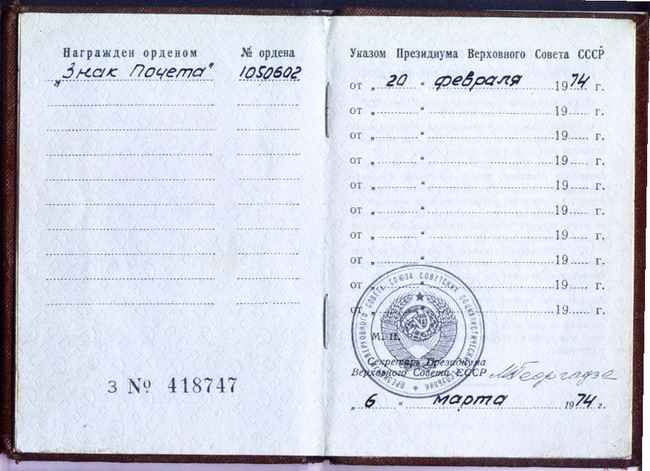 Награжден орденом
№ ордена
„Знак Почета“
1050602
З № 418747
Указом Президиума Верховного Совета СССР
от „ 20 “ февраля 1974 г.
от „ “ 19 г.
от „ “ 19 г.
от „ “ 19 г.
от „ “ 19 г.
от „ “ 19 г.
от „ “ 19 г.
от „ “ 19 г.
от „ “ 19 г.
от „ “ 19 г.
ПРЕЗИДИУМ ВЕРХОВНОГО СОВЕТА СОЮЗА СОВЕТСКИХ СОЦИАЛИСТИЧЕСКИХ РЕСПУБЛИК
М. П.
Секретарь Президиума
Верховного Совета СССР
МГеоргадзе
„ 6 “ марта 1974 г.